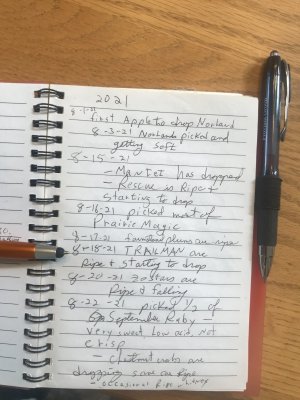 2021
8-1-21
first Apple to drop Norland
8-3-21 Norlands picked and
getting soft
8-15-21
- Mantet has dropped
- Rescue is Ripe &
starting to drop
8-16-21 picked most of
Prairie Magic
8-17-21 plums are ripe
8-18-21 TRAILMAN are
Ripe & starting to drop
8-20-21 Zestars are
Ripe & Falling
8-22-21 picked 1/2 of
September Ruby -
Very sweet, low acid, not
crisp
- Chestnut crabs are
dropping some are Ripe
- occasional Ripe